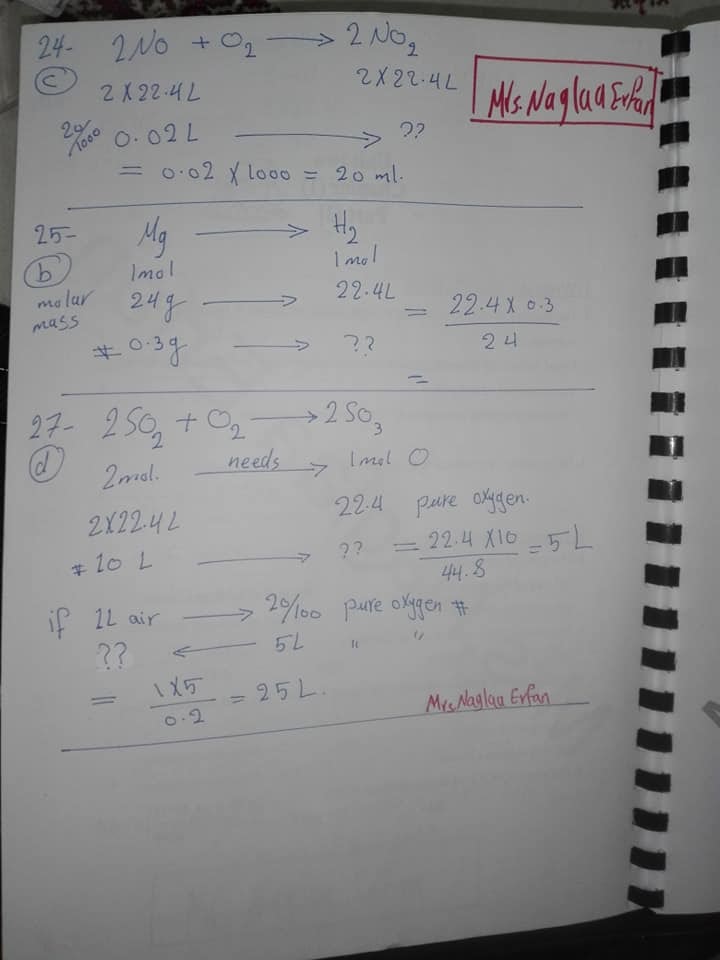 24- 2NO + O2 → 2NO2
c 2X22.4L 2X22.4L
Mrs. Naglaa Erfan
20/1000 0.02L → ??
= 0.02 X 1000 = 20 ml.
25- Mg → H2
b 1mol 1mol
molar mass 24g → 22.4L = 22.4 X 0.3 / 24
# 0.3g → ??
=
27- 2SO2 + O2 → 2SO3
d 2mol. needs → 1mol O
2X22.4L 22.4 pure oxygen.
# 10 L → ?? = 22.4 X10 / 44.8 = 5L
if 1L air → 20/100 pure oxygen #
?? ← 5L " "
= 1X5 / 0.2 = 25L.
Mrs Naglaa Erfan